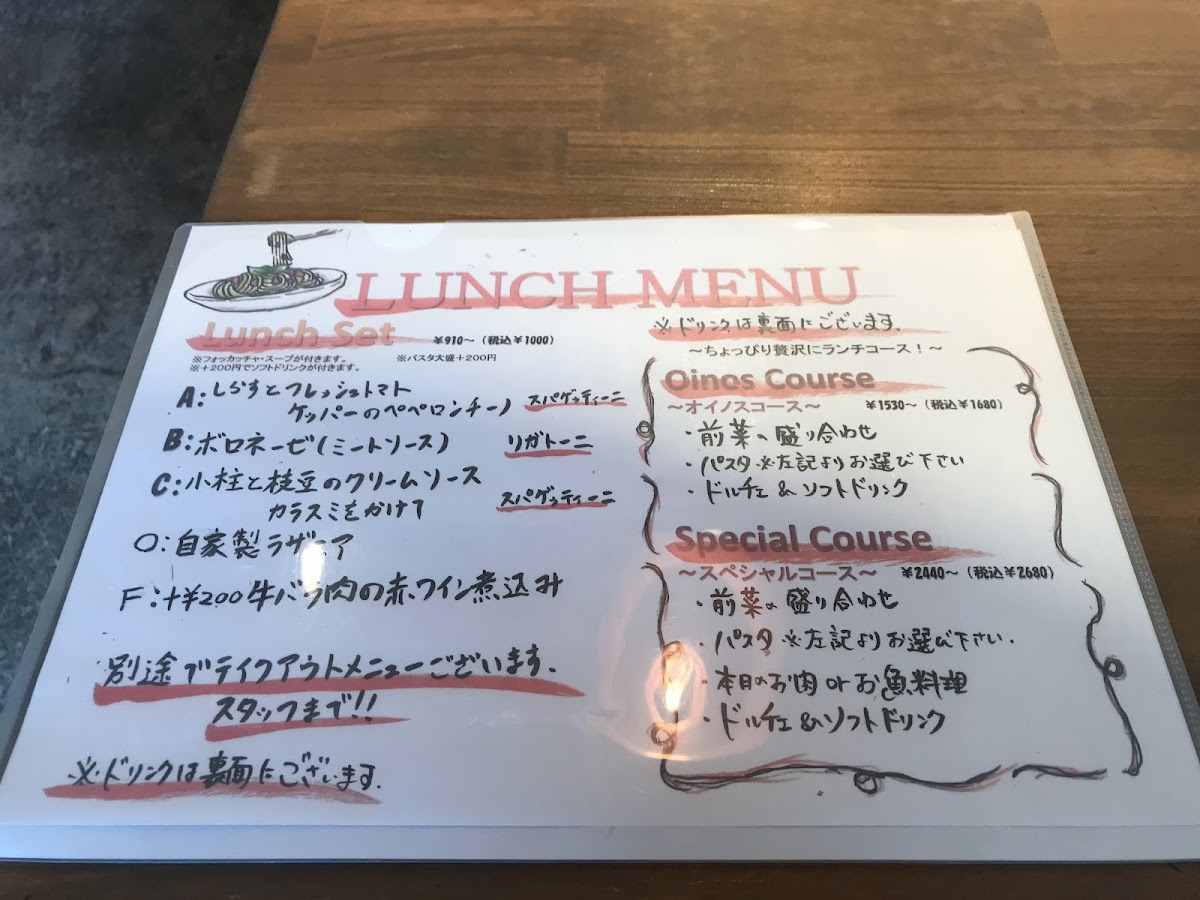 LUNCH MENU
Lunch Set ¥910～（税込¥1000）
※フォッカッチャ・スープが付きます。 ※パスタ大盛＋200円
※＋200円でソフトドリンクが付きます。
A:しらすとフレッシュトマト
ケッパーのペペロンチーノ スパゲッティーニ
B:ボロネーゼ(ミートソース) リガトーニ
C:小柱と枝豆のクリームソース
カラスミをかけて スパゲッティーニ
O:自家製ラザニア
F:+¥200牛バラ肉の赤ワイン煮込み
別途でテイクアウトメニューございます.
スタッフまで!!
※ドリンクは裏面にございます.
※ドリンクは裏面にございます.
～ちょっぴり贅沢にランチコース！～
Oinos Course
～オイノスコース～ ¥1530～（税込¥1680）
・前菜の盛り合わせ
・パスタ※左記よりお選び下さい
・ドルチェ&ソフトドリンク
Special Course
～スペシャルコース～ ¥2440～（税込¥2680）
・前菜の盛り合わせ
・パスタ※左記よりお選び下さい.
・本日のお肉orお魚料理
・ドルチェ&ソフトドリンク